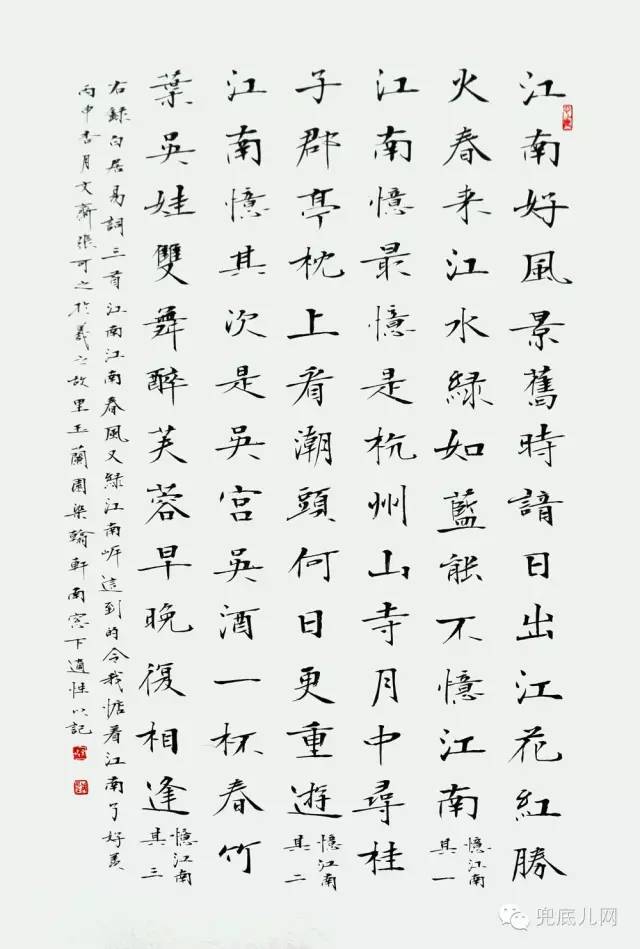 江南好風景舊時諳日出江花紅勝
火春来江水緑如藍能不憶江南
憶江南
其一
江南憶最憶是杭州山寺月中尋桂
子郡亭枕上看潮頭何日更重遊
憶江南
其二
江南憶其次是吳宮吳酒一杯春竹
葉吳娃雙舞醉芙蓉早晚復相逢
憶江南
其三
右録白居易詞三首江南江南春風又緑江南岸這到的令我惦看江南了好
丙申杏月文齋張可之於羲之故里玉蘭園翰軒南窓下適性以記
兜底儿网